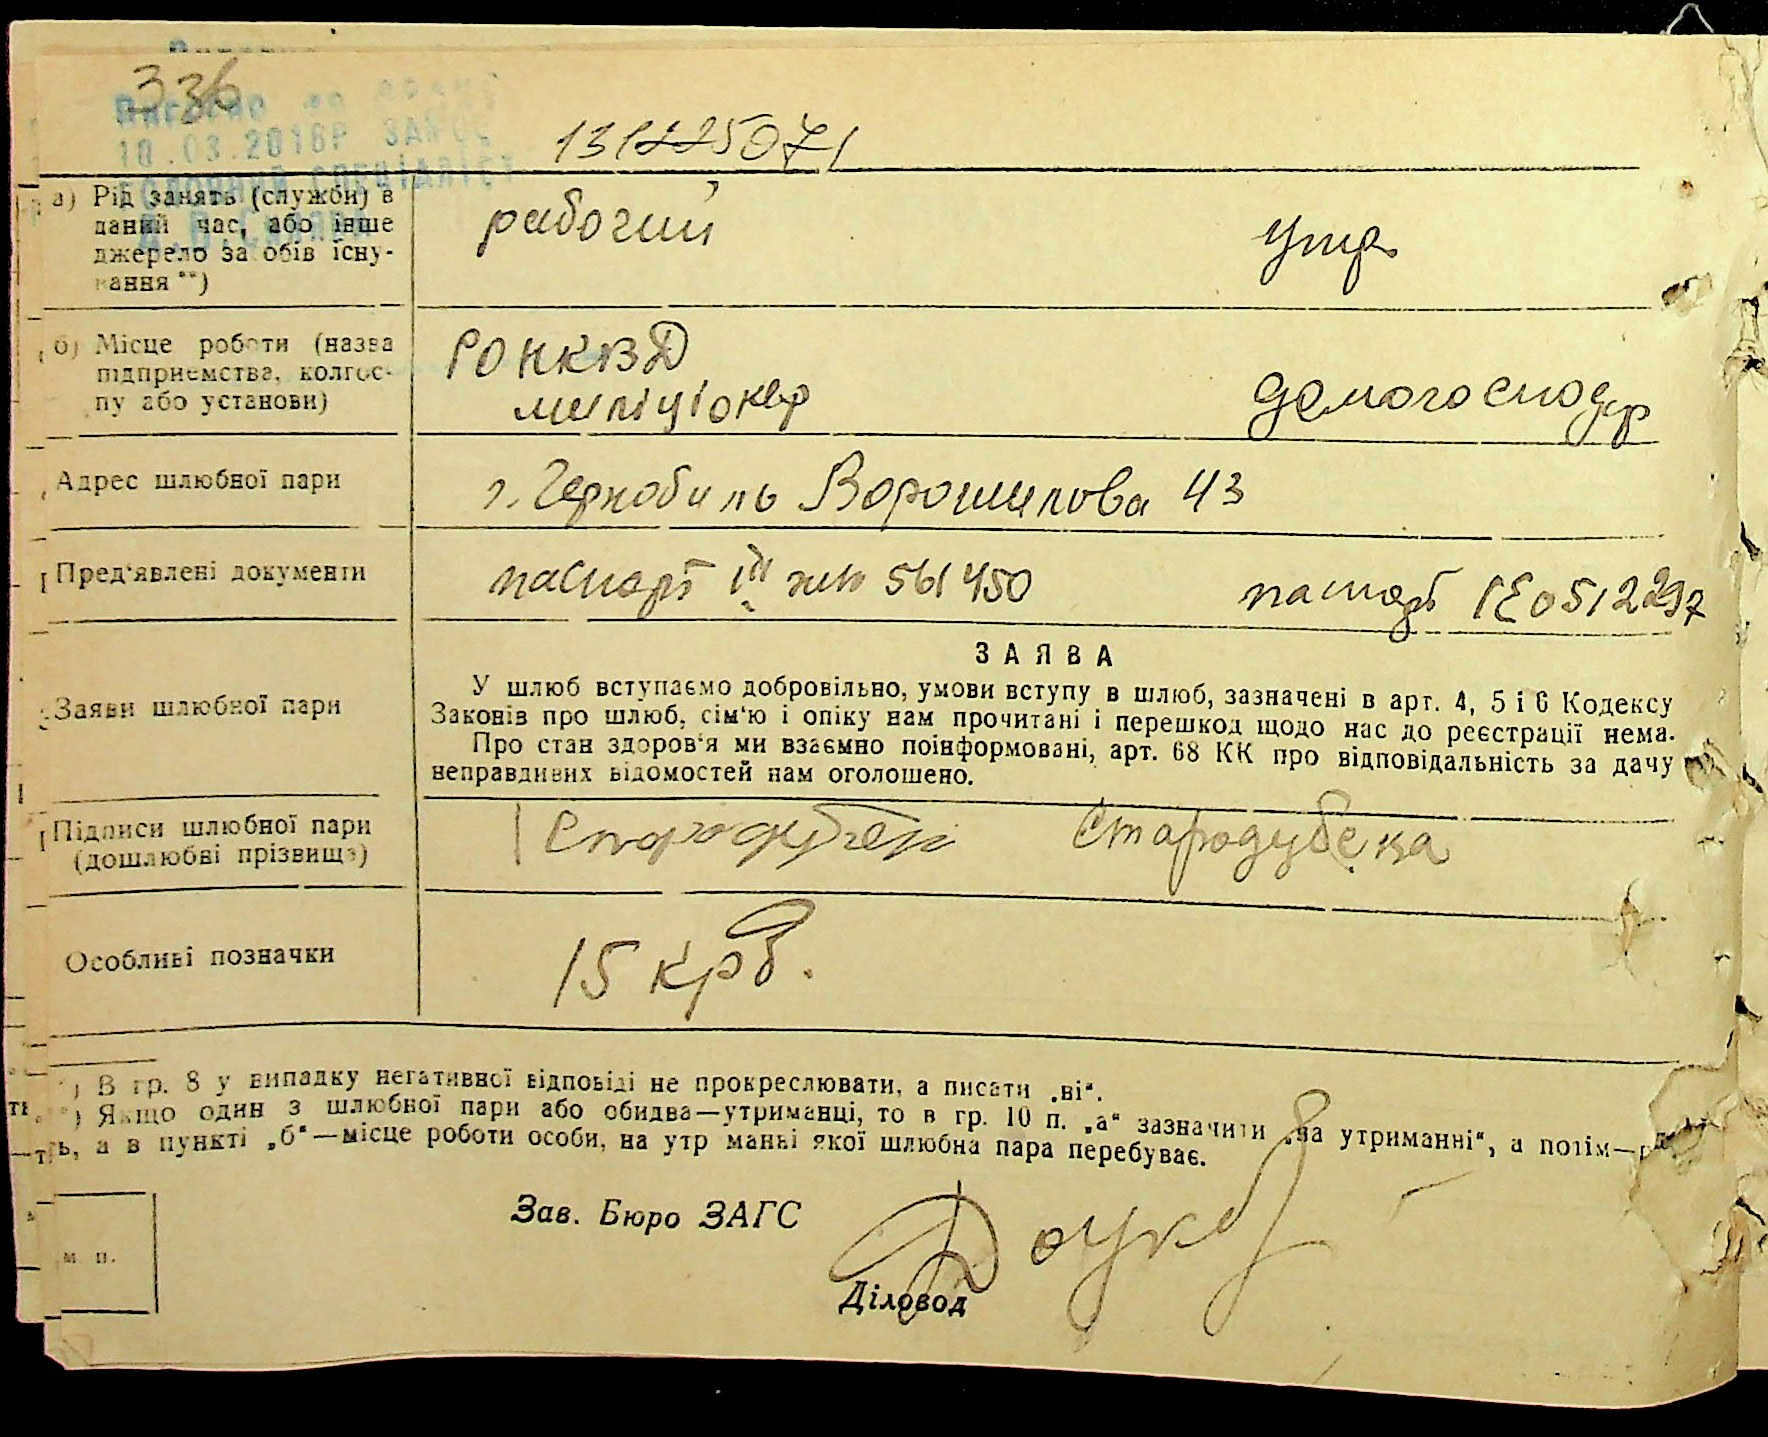 336
10.03.2016р
131225071
а) Рід занять (служби) в
даний час, або інше
джерело за обів існу-
вання **)
рабочий
утр.
б) Місце роботи (назва
підприємства, колгос-
пу або установи)
РО НКВД
міліціонер
домогосподар
Адрес шлюбної пари
г. Чернобиль Ворошилова 43
Пред'явлені документи
паспорт 561450
паспорт
Заяви шлюбної пари
ЗАЯВА
У шлюб вступаємо добровільно, умови вступу в шлюб, зазначені в арт. 4, 5 і 6 Кодексу
Законів про шлюб, сім'ю і опіку нам прочитані і перешкод щодо нас до реєстрації нема.
Про стан здоров'я ми взаємно поінформовані, арт. 68 КК про відповідальність за дачу
неправдивих відомостей нам оголошено.
Підписи шлюбної пари
(дошлюбні прізвища)
Стародубец
Особливі позначки
15 крб.
*) В гр. 8 у випадку негативної відповіді не прокреслювати, а писати „ні“.
**) Якщо один з шлюбної пари або обидва—утриманці, то в гр. 10 п. „а“ зазначити „на утриманні“, а потім—
а в пункті „б“—місце роботи особи, на утр манні якої шлюбна пара перебуває.
Зав. Бюро ЗАГС
Діловод
м. п.